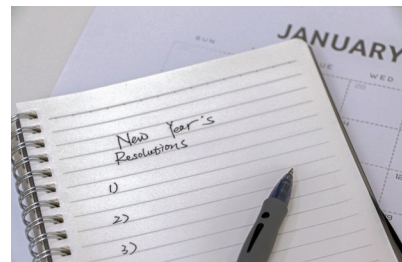 SUN
JANUARY
WED
New Year's
Resolutions
1)
2)
3)